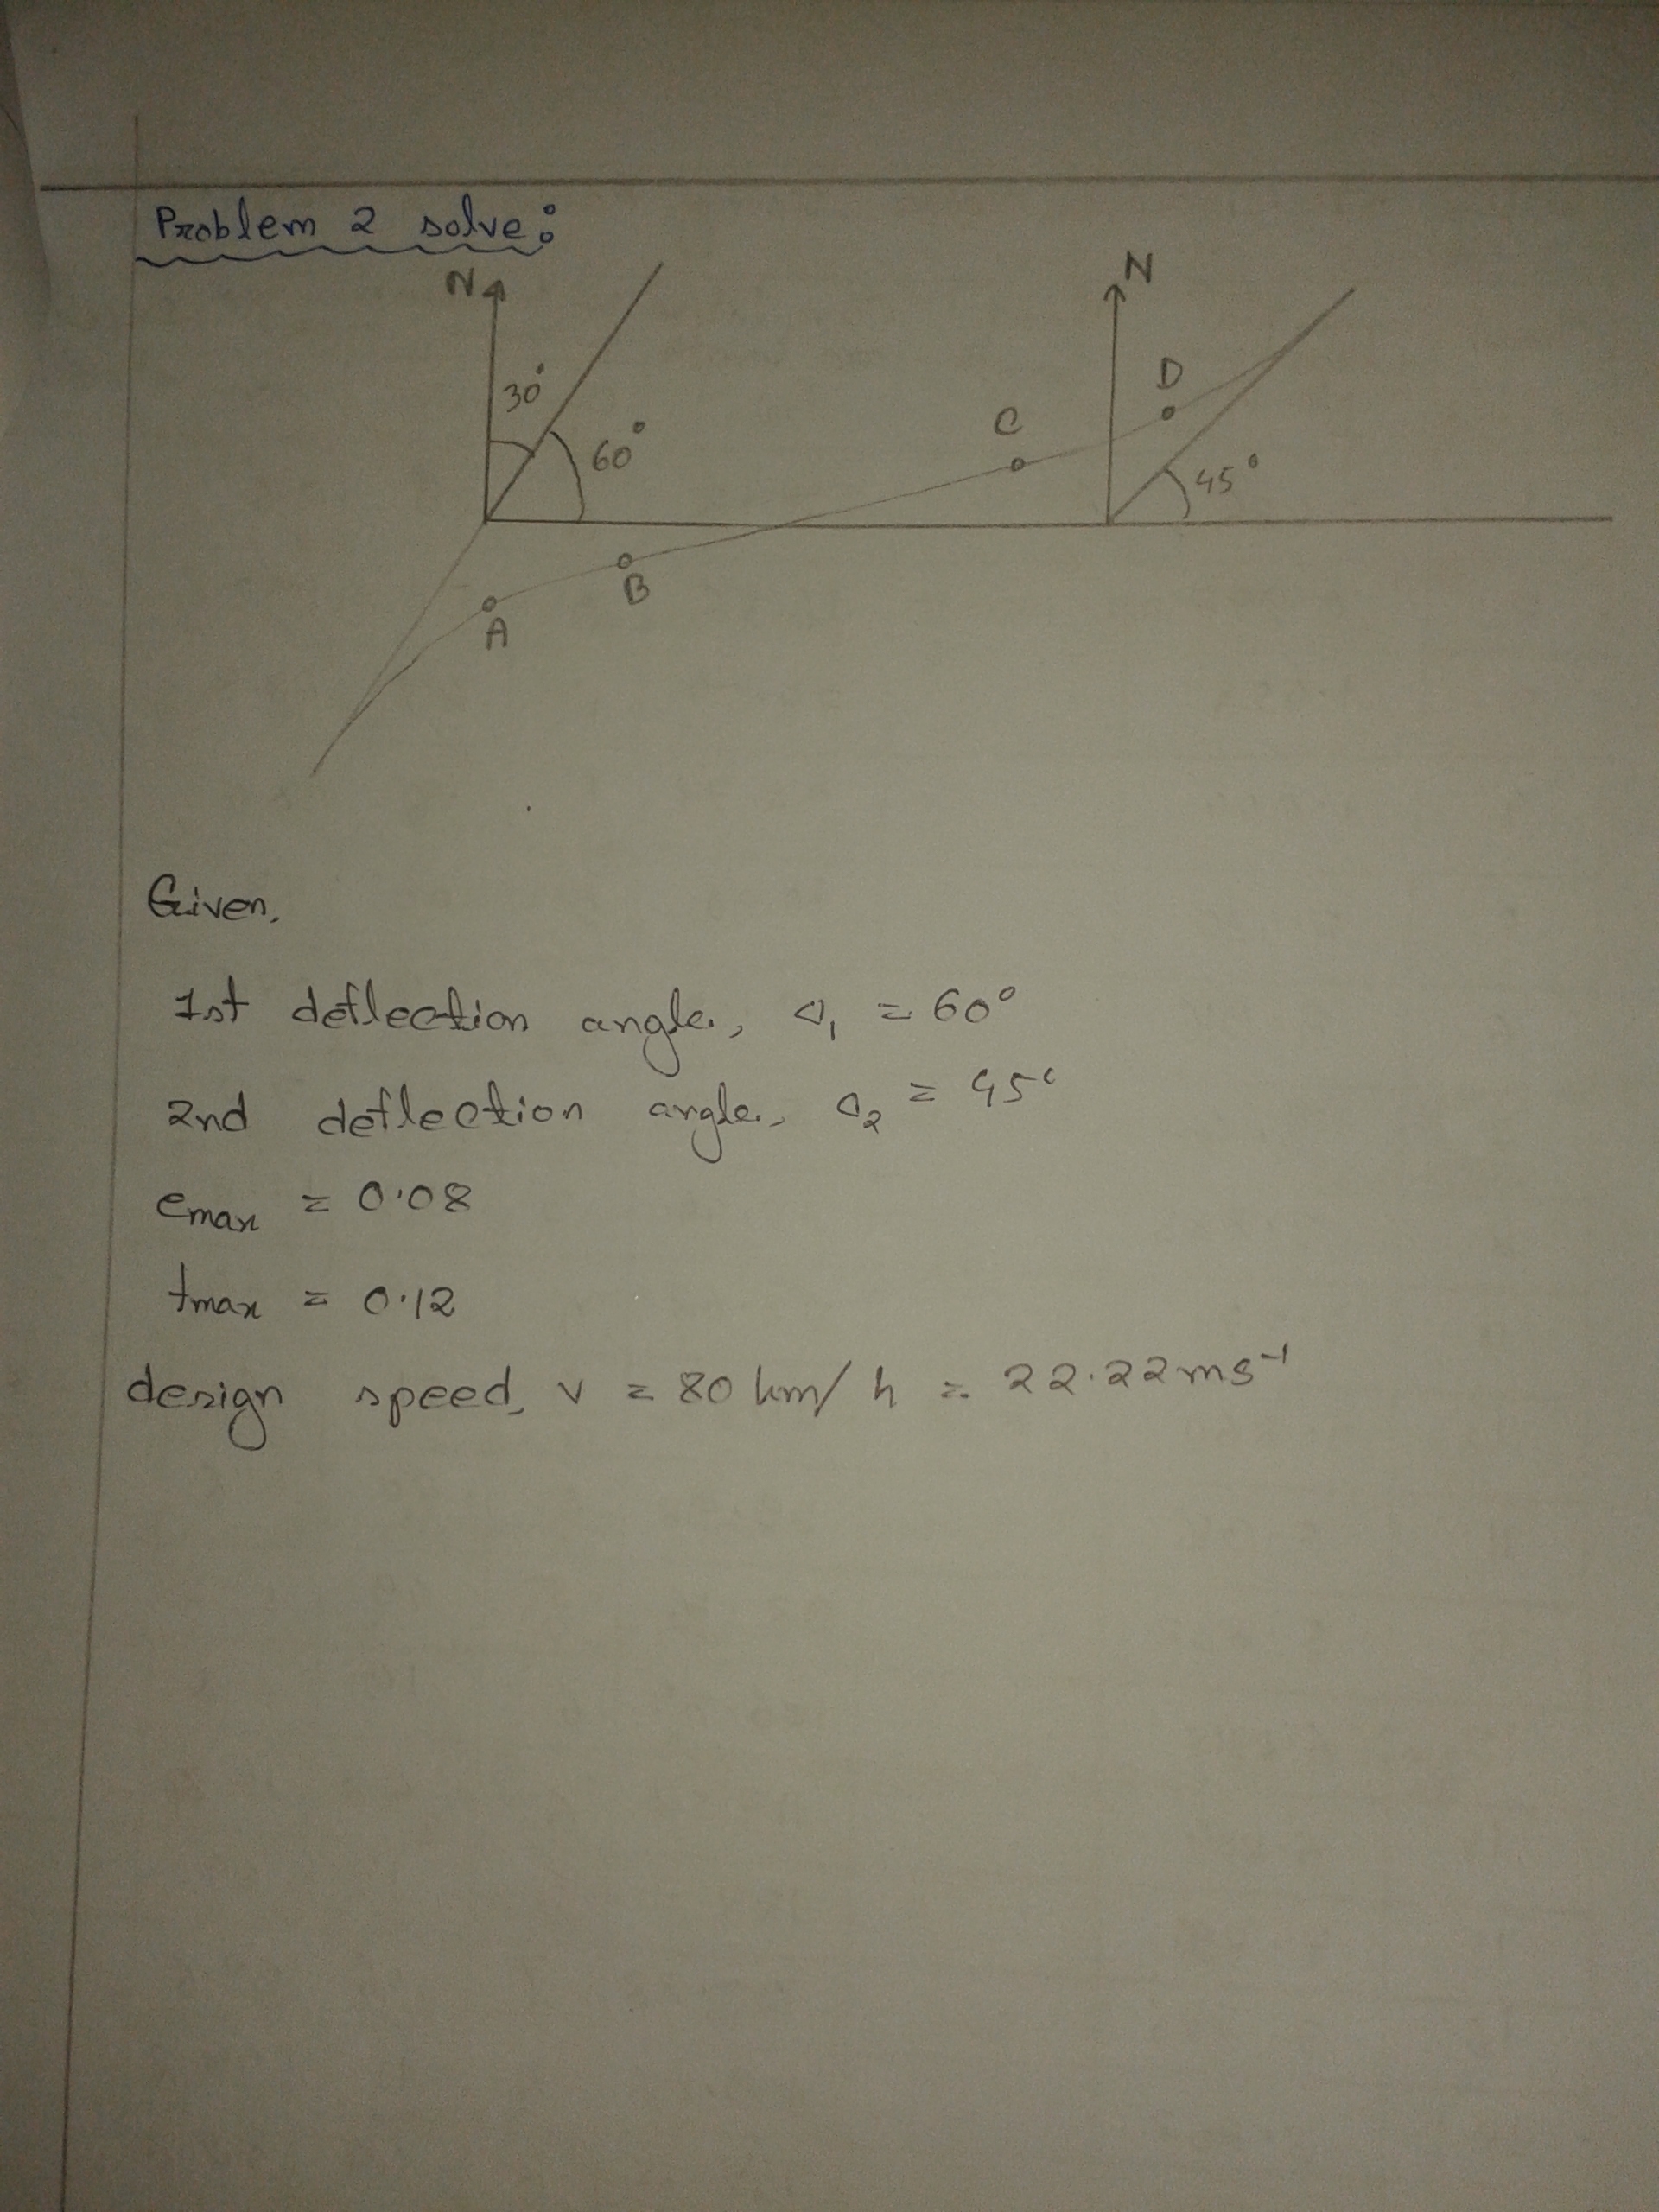 Problem 2 solve:
N N
30°
60°
C D
45°
A B
Given,
1st deflection angle, Δ₁ = 60°
2nd deflection angle, Δ₂ = 45°
emax = 0.08
fmax = 0.12
design speed, v = 80 km/h = 22.22 ms⁻¹